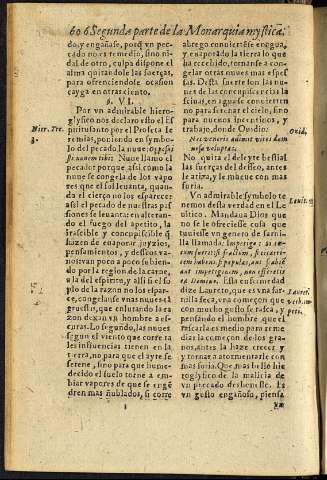 606 Segunda parte de la Monarquia mystica,
do, y engañase, porq̃ vn pe
cado no es remedio, sino ni-
dal de otro, culpa dispone el
alma quitandole las fuerças,
para ofrendiendole ocasion
cayga en otras ciento.
§. VI.
Por vn admirable hiero-
glyfico nos declaro esto el Es
piritu santo por el Profeta Ie
remias, poniendo en symbo-
lo del pecado la nube: Opposui
sti nubem tibi. Nube llamo el
pecador porque assi como la
nube se congela de los vapo
res que el sol leuanta, quan-
do el cierço no los esparce:
assi el pecado de nuestras pas
siones se leuanta: en alteran-
do el fuego del apetito, la
irascible y concupiscible se
luzen de euaporar juyzios,
pensamientos, y desseos va-
nos: van poco a poco subien-
do por la region de la carne,
a la del espiritu, y alli si el so
plo de la razon no los espar-
ce, congelanse vnas nuues tã
gruessas, que enlutando la ra
zon dexan vn hombre a es-
curas. Lo segundo, las nuues
segun el viento que corre ta
les influencias tienen en la
tierra, no para que el ayre se
serene, sino para que hume-
decido el suelo torne a em-
biar vapores de que se engẽ
dren mas ñublados, si corre
Hier. Tre.
3.
abrego conuiertese en agua,
y enpapado la tierra lo que
ha recebido, tornanse a con-
gelar otras nuues mas espes-
sas. Desta suerte son las nu-
ues de las concupiscencias la
sciuas, en aguas conuierten
no para serenar el cielo, sino
para nueuos incentiuos, y
trabajo, donde Ouidio:
Nec veneris adimit vires dam
nosa voluptas.
No quita el deleyte bestial
las fuerças del desseo, antes
le atiza, y le mueue con mas
furia.
Vn admirable symbolo te
nemos desta verdad en el Le
uitico. Mandaua Dios que
no se le ofreciesse cosa que
tuuiesse vn genero de sarni-
lla llamada:
Y essa enfermedad
dize Laureto, que es vna sar-
nilla seca, vna começon que
con mucho gusto se rasca, y
pensando el hombre que el
rascarla es medio para reme
diar la começon de los gra-
nos, antes la haze crecer y
y tornar a atormentarle con
mas furia. Que mas bello hie
roglyfico de la malicia de
vn pecado deshonesto. Es
vn gusto engañoso, piensa
Ouid.
Leuit. 22
vn